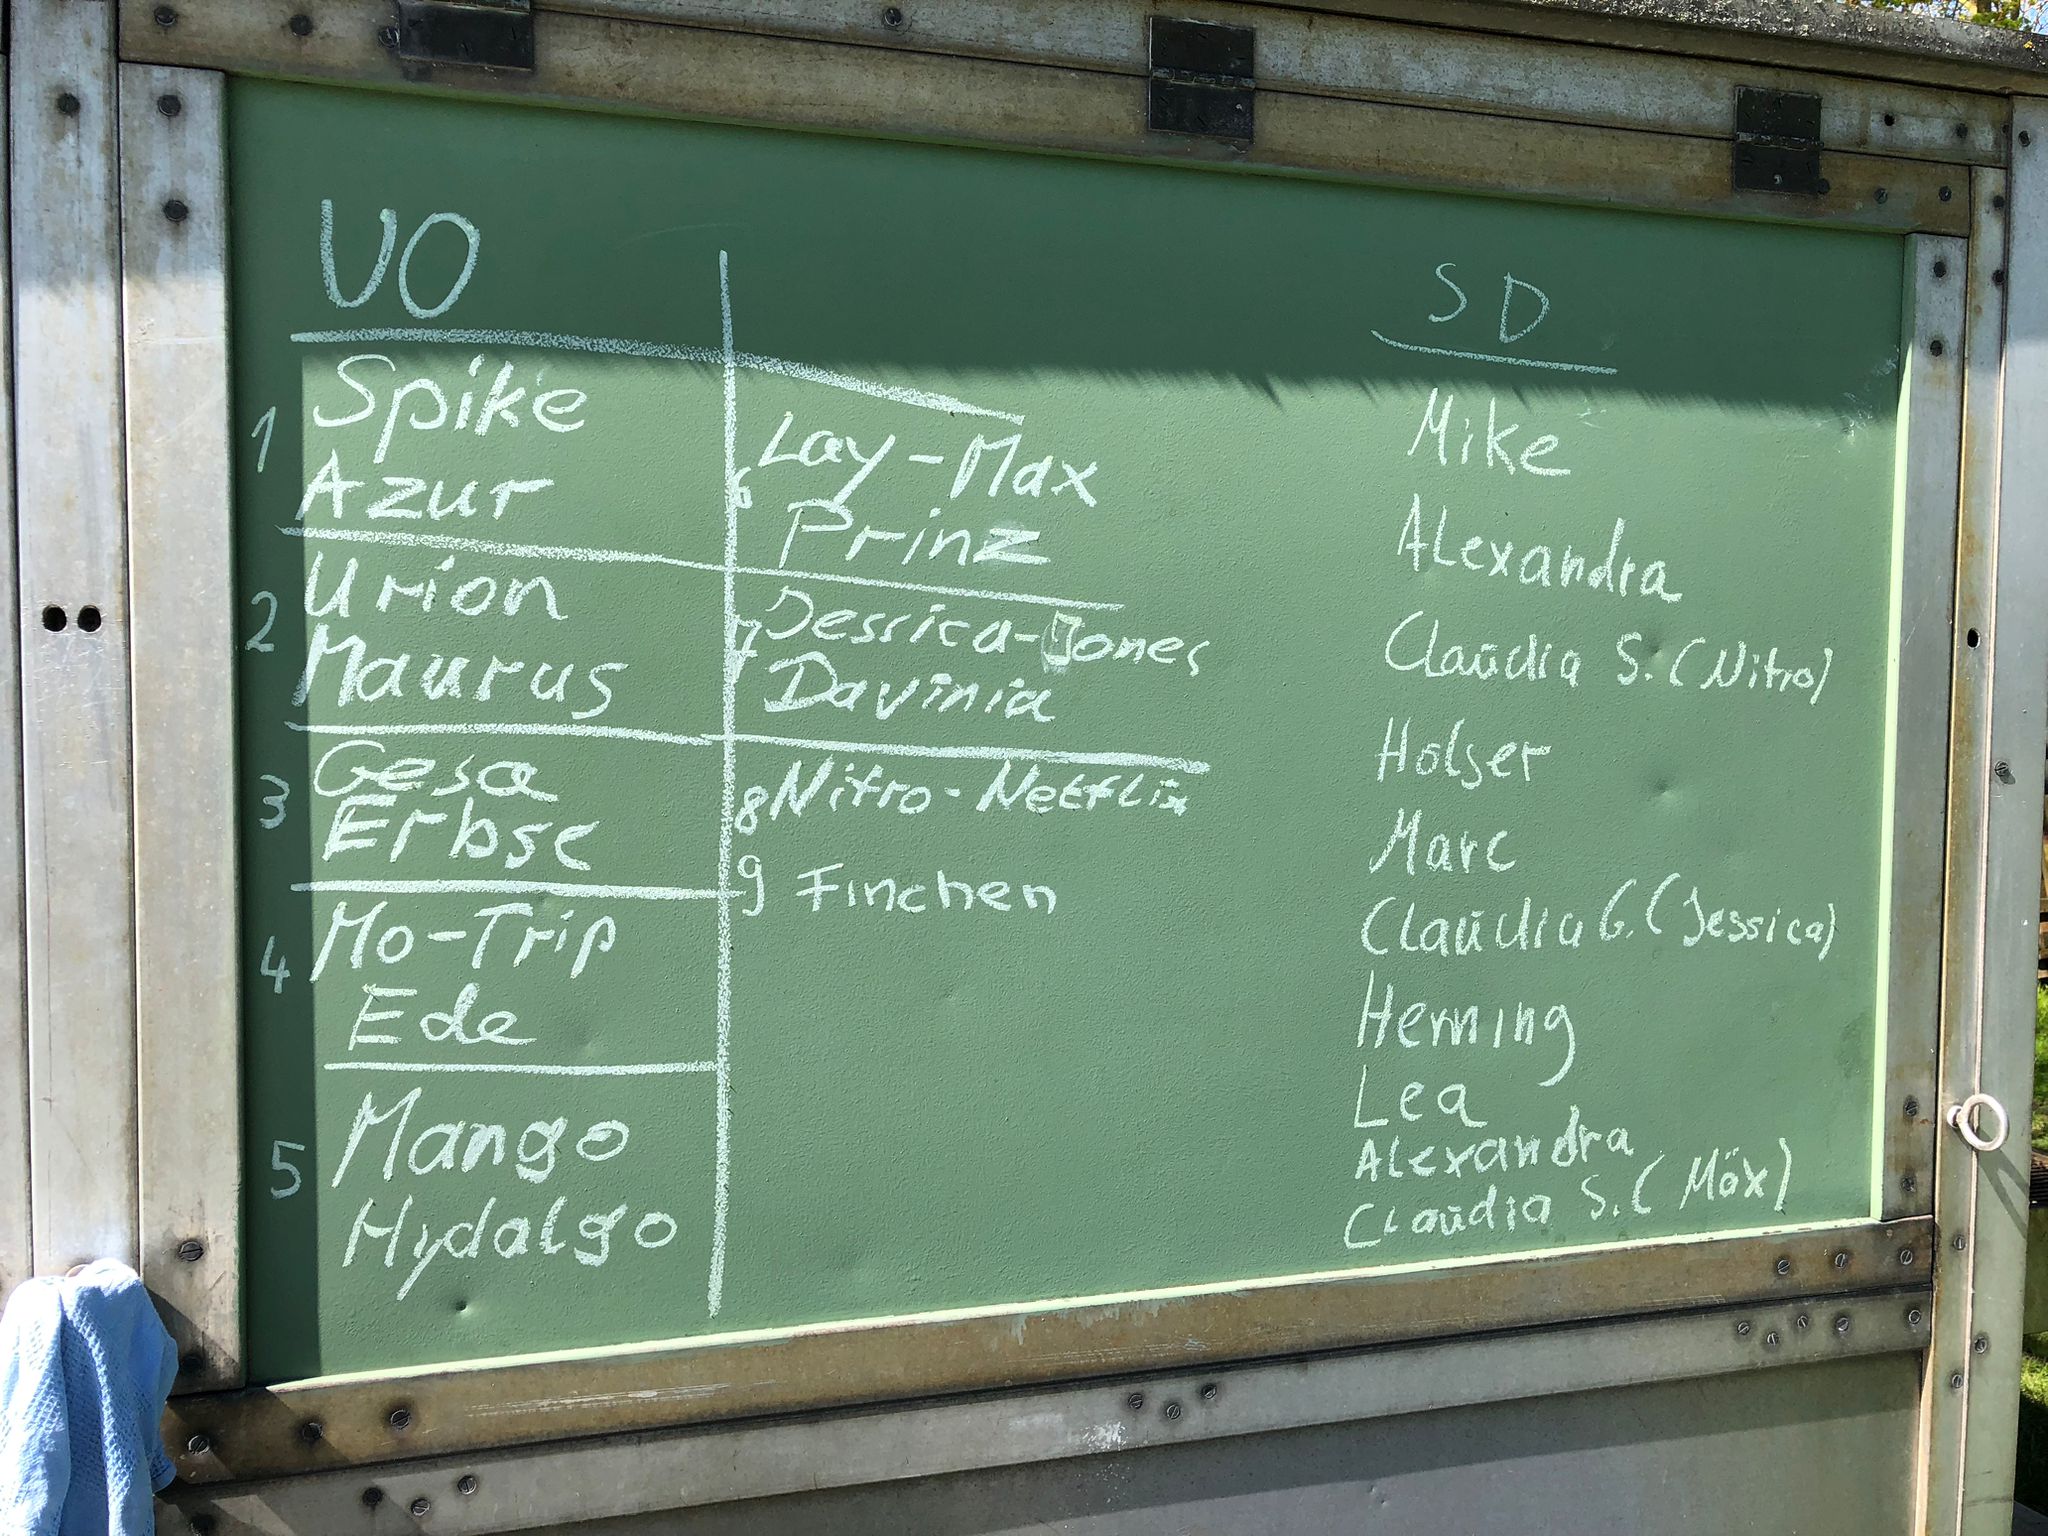 UO
1 Spike
Azur
2 Urion
Maurus
3 Gesa
Erbse
4 Mo-Trip
Ede
5 Mango
Hydalgo
6 Lay-Max
Prinz
7 Jessica-Jones
Davinia
8 Nitro-Netflix
9 Finchen
SD
Mike
Alexandra
Claŭdia S. (Nitro)
Holger
Marc
Claŭdia G. (Jessica)
Henning
Lea
Alexandra
Claŭdia S. (Möx)